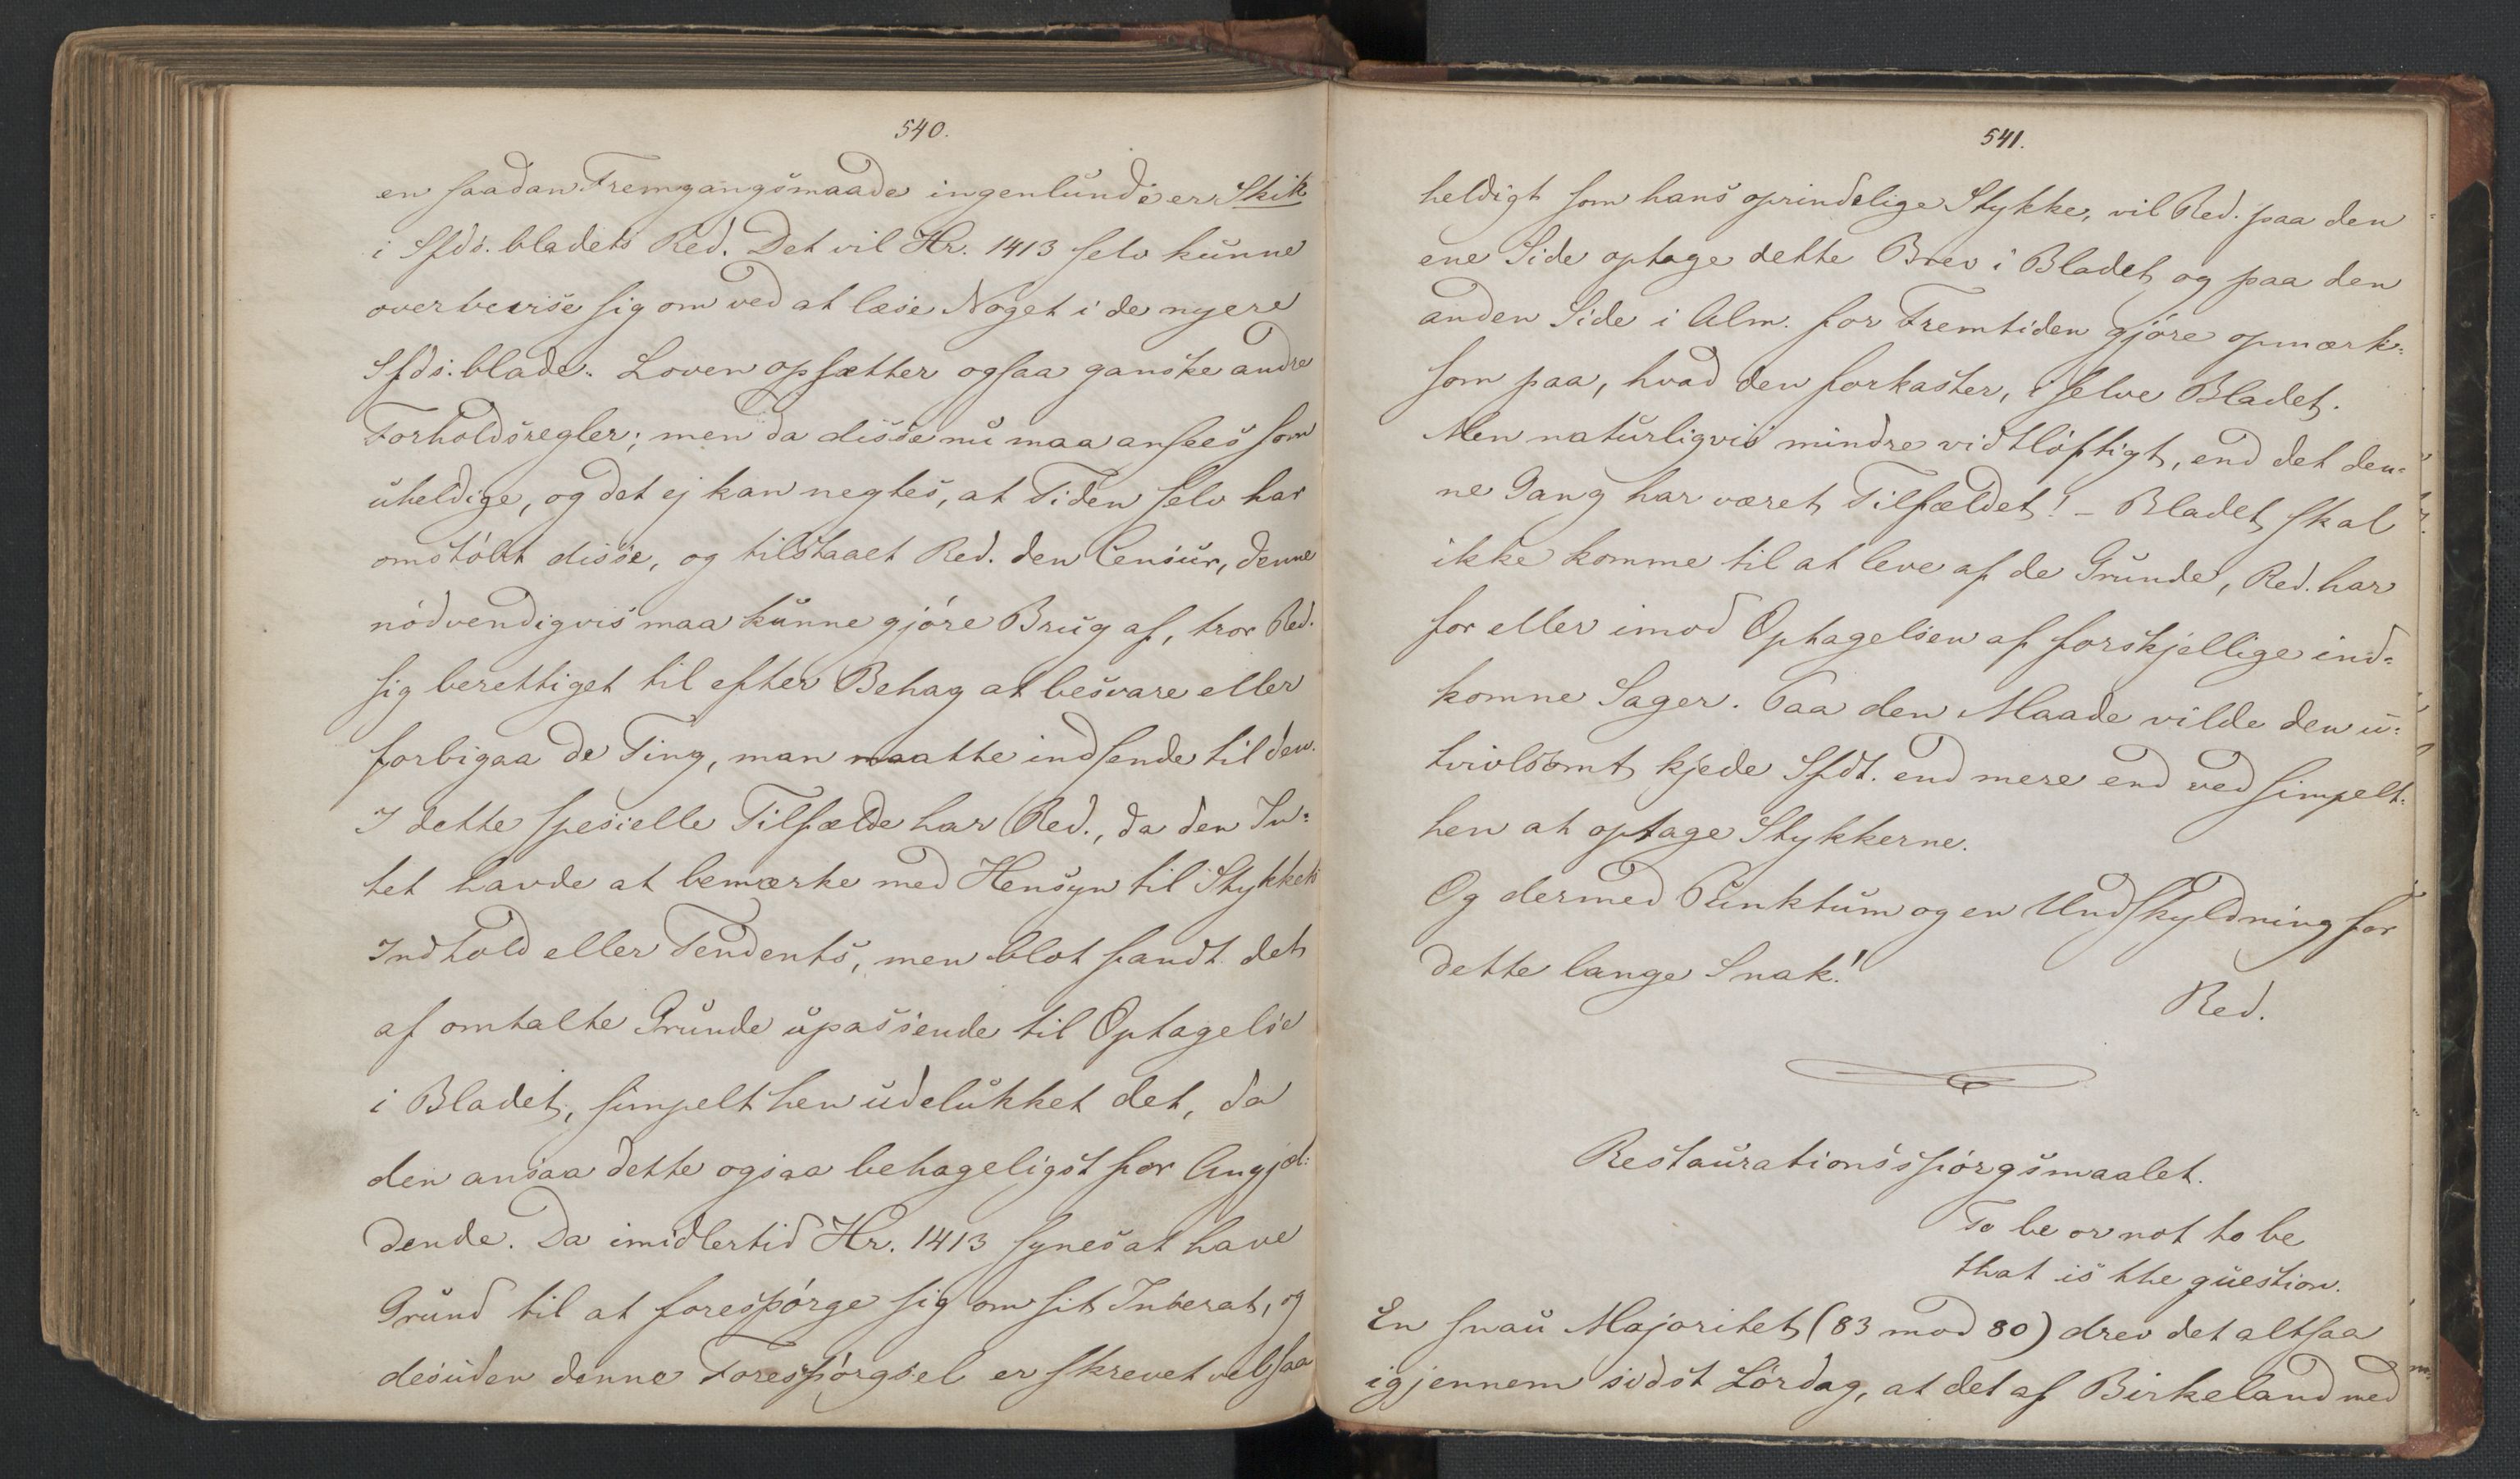 540.
en saadan Fremgangsmaade ingenlunde er Skik
i Sfds. bladets Red. Det vil Hr. 1413 selv kunne
overbevise sig om ved at læse Noget i de nyere
Sfds. blade. Loven opsætter ogsaa ganske andre
Forholdsregler; men da disse nu maa ansees som
uheldige, og det ej kan negtes, at Tiden selv har
omstödt disse, og tilstaaet Red. den Censur, denne
nödvendigvis maa kunne gjöre Brug af, tror Red.
sig berettiget til efter Behag at besvare eller
forbigaa de Ting, man maatte indsende til den.
I dette spesielle Tilfælde har Red., da den In-
tet havde at bemærke med Hensyn til Stykkets
Indhold eller Tendents, men blot fandt det
af omtalte Grunde upassende til Optagelse
i Bladet, simpelthen udelukket det, da
den ansaa dette ogsaa behageligst for Angjæl-
dende. Da imidlertid Hr. 1413 synes at have
Grund til at forespörge sig om sit Inserat, og
desuden denne Forespörgsel er skrevet velsaa
541.
heldigt som hans oprindelige Stykke, vil Red. paa den
ene Side optage dette Brev i Bladet og paa den
anden Side i Alm. for Fremtiden gjöre opmærk-
som paa, hvad den forkaster, i selve Bladet.
Men naturligvis mindre vidtlöftigt, end det den-
ne Gang har været Tilfældet! – Bladet skal
ikke komme til at leve af de Grunde, Red. har
for eller imod Optagelsen af forskjellige ind-
komne Sager. Paa den Maade vilde den u-
tvivlsomt kjede Sfdt. end mere end ved simpelt-
hen at optage Stykkerne.
Og dermed Punktum og en Undskyldning for
dette lange Snak!
Red.
Restaurationsspörgsmaalet.
To be or not to be
that is the question.
En snau Majoritet (83 mod 80) drev det altsaa
igjennem sidst Lördag, at det af Birkeland med